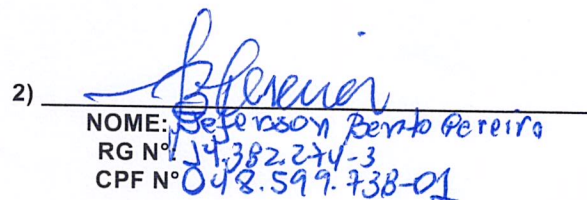 2)
NOME: Jeferson Bento Pereira
RG Nº 14.382.274-3
CPF Nº 048.599.738-01